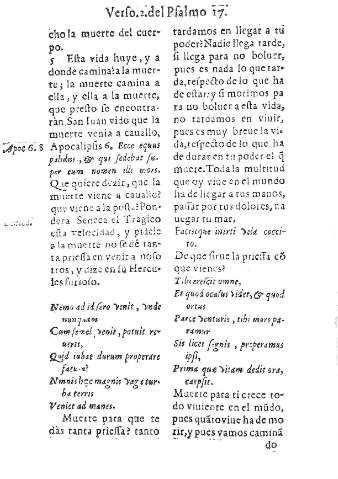 Verso. 2. del Psalmo 17.
cho la muerte del cuer-
po.
5 Esta vida huye, y a
donde camina? a la muer-
te; la muerte camina a
ella, y ella a la muerte,
que presto se encontra-
ràn. San Iuan vido que la
muerte venia a cauallo,
Apoc 6. 8
Apocalipsis 6. Ecce equus
palidus, & qui sedebat su-
per eum nomen illi mors.
Que quiere dezir, que la
muerte viene a cauallo?
que viene a la posta? Pon-
dera Seneca el Tragico
esta velocidad, y pidele
a la muerte no se dè tan-
ta priessa en venir a noso-
tros, y dize en su Hercu-
les furioso.
Nemo ad id sero venit, vnde
nunquam
Cum semel venit, potuit re-
uerti,
Quid iubat durum properare
fatum?
Omnis hęc magnis vaga tur-
ba terris
Veniet ad manes.
Muerte para que te
das tanta priessa? tanto
tardamos en llegar a tu
poder? Nadie llega tarde,
si llega para no boluer,
pues es nada lo que tar-
da, respecto de lo que ha
de estar: y si morimos pa-
ra no boluer a esta vida,
no tardamos en viuir,
pues es muy breue la vi-
da, respecto de lo que ha
de durar en tu poder el q̃
muere. Toda la multitud
que oy viue en el mundo
ha de llegar a tus manos,
passar por tus dolores, na
uegar tu mar,
Facitque inerti vela cocci-
to.
De que sirue la priessa cõ
que vienes?
Tibi crescit omne,
Et quod ocasus videt, & quod
ortus
Parce venturis, tibi mors pa-
ramur
Sis licet signis, properamus
ipsi,
Prima quæ vitam dedit ora,
carpsit.
Muerte para ti crece to-
do viuiente en el mũdo,
pues quãto viue ha de mo
rir, y pues vamos caminã
do